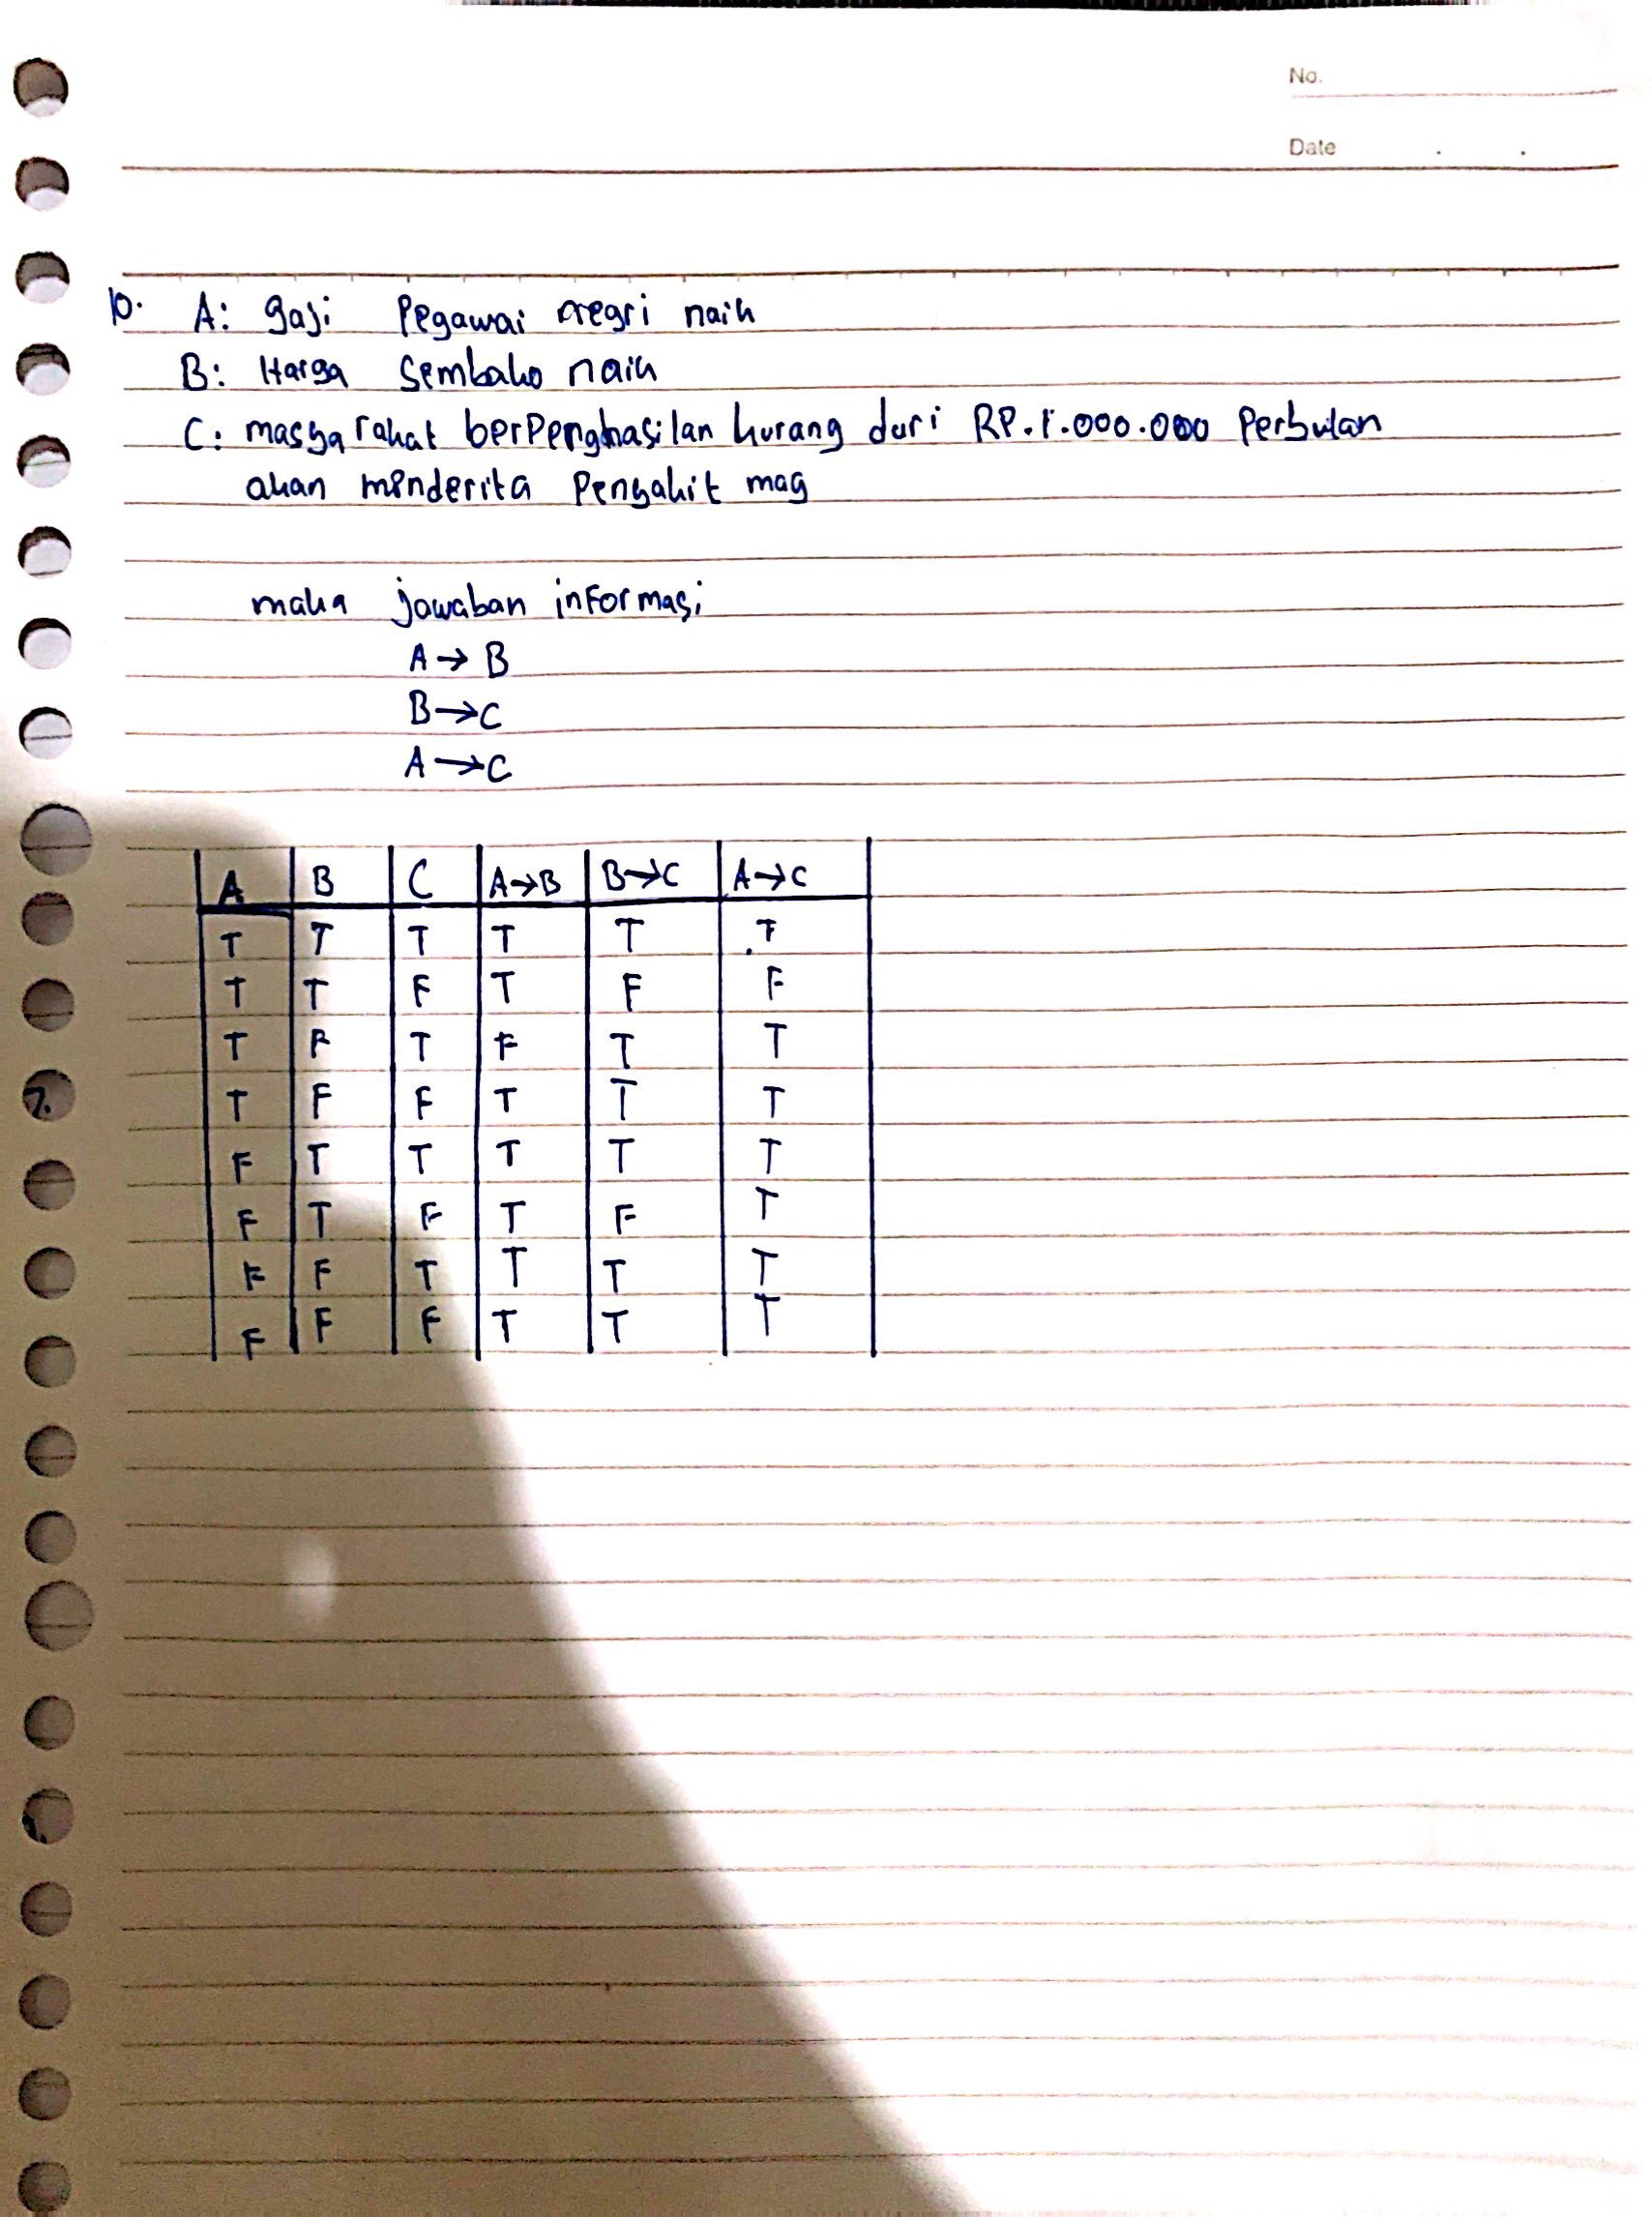 No.
Date . .
10. A: gaji Pegawai negri naik
B: Harga Sembako naik
C: masyarakat berpenghasilan kurang dari RP.1.000.000 Perbulan
akan menderita Penyakit mag
maka jawaban informasi
A → B
B → C
A → C
A B C A→B B→C A→C
T T T T T T
T T F T F F
T F T F T T
T F F T T T
F T T T T T
F T F T F T
F F T T T T
F F F T T T